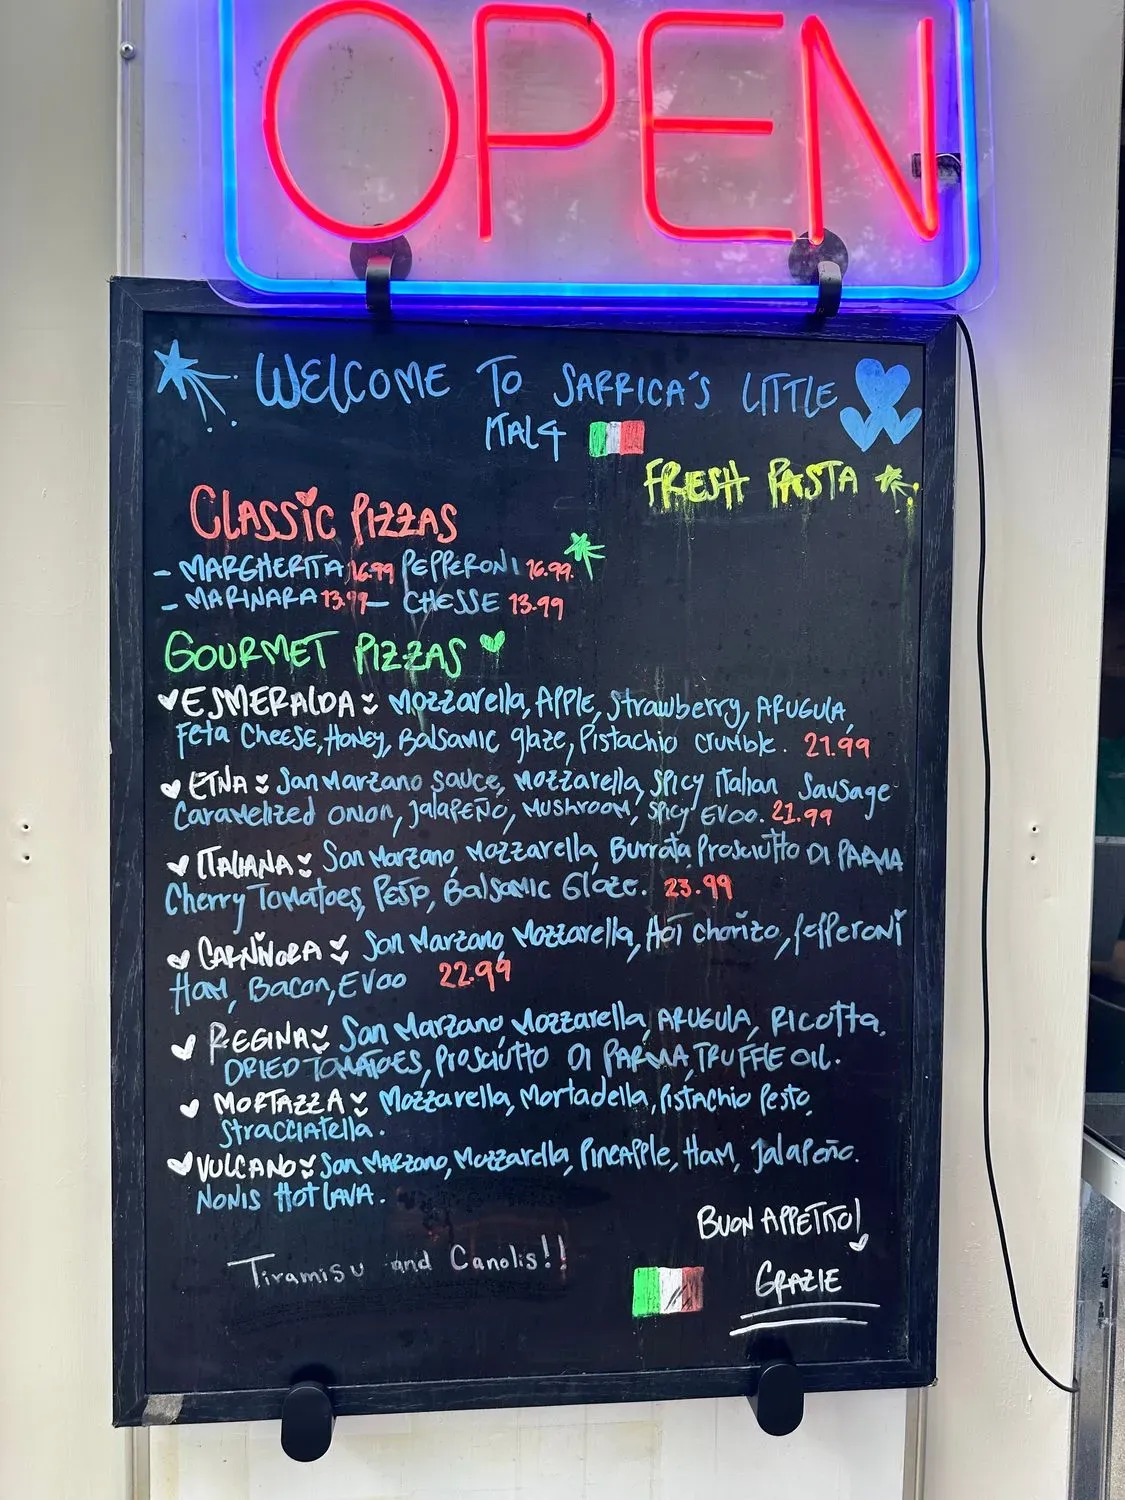 OPEN
WELCOME TO SARRICA'S LITTLE
ITALY
FRESH PASTA
CLASSIC PIZZAS
- MARGHERITA 16.99 PEPPERONI 16.99.
- MARINARA 13.99 - CHESSE 13.99
GOURMET PIZZAS
ESMERALDA: Mozzarella, APPLE, Strawberry, ARUGULA,
Feta CHEESE, HONEY, BALSAMIC glaze, Pistachio crumble. 21.99
ETNA: San Marzano sauce, Mozzarella, SPICY Italian Sausage
Caramelized onion, JALAPEÑO, MUSHROOM, SPICY EVOO. 21.99
ITALIANA: San Marzano, Mozzarella, Burrata, Prosciutto DI PARMA
Cherry Tomatoes, Pesto, Balsamic Glaze. 23.99
CARNIVORA: San Marzano, Mozzarella, Hot chorizo, Pepperoni
Ham, Bacon, EVOO 22.99
REGINA: San Marzano, Mozzarella, ARUGULA, RICOTTA.
DRIED TOMATOES, PROSCIUTTO DI PARMA, TRUFFLE OIL.
MORTAZZA: Mozzarella, Mortadella, Pistachio Pesto,
Stracciatella.
VULCANO: San MARZANO, Mozzarella, PINEAPPLE, HAM, Jalapeño.
NONIS HOT LAVA.
BUON APPETITO!
Tiramisu and Canolis!!
GRAZIE